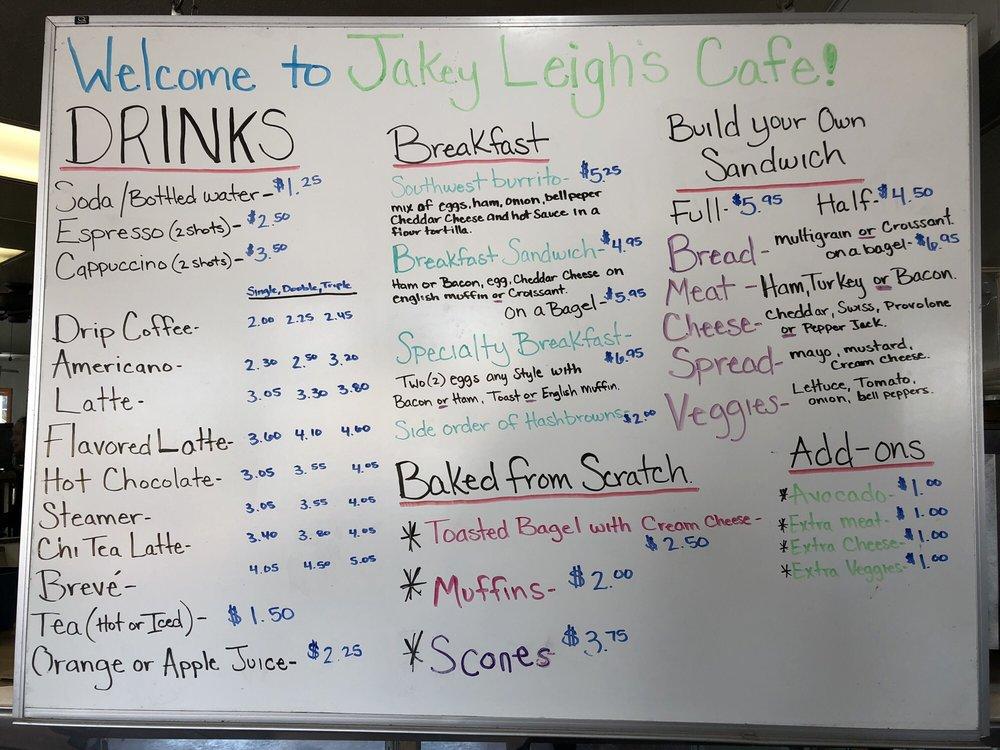 Welcome to Jakey Leigh's Cafe!
DRINKS
Soda/Bottled water - $1.25
Espresso (2 shots) - $2.50
Cappuccino (2 shots) - $3.50
Single, Double, Triple
Drip Coffee - 2.00 2.25 2.45
Americano - 2.30 2.50 3.20
Latte - 3.05 3.30 3.80
Flavored Latte - 3.60 4.10 4.60
Hot Chocolate - 3.05 3.55 4.05
Steamer - 3.05 3.55 4.05
Chi Tea Latte - 3.40 3.80 4.05
Brevé - 4.05 4.50 5.05
Tea (Hot or Iced) - $1.50
Orange or Apple Juice - $2.25
Breakfast
Southwest burrito - $5.25
mix of eggs, ham, onion, bell peper
Cheddar Cheese and hot Sauce in a
flour tortilla.
Breakfast Sandwich - $4.95
Ham or Bacon, egg, Cheddar Cheese on
english muffin or Croissant.
on a Bagel - $5.95
Specialty Breakfast -
$6.95
Two (2) eggs any Style with
Bacon or Ham, Toast or English muffin.
Side order of Hashbrowns $2.00
Baked from Scratch
* Toasted Bagel with Cream Cheese -
$2.50
* Muffins - $2.00
* Scones $3.75
Build your Own
Sandwich
Full - $5.95 Half - $4.50
Bread - multigrain or Croissant.
on a bagel - $6.95
Meat - Ham, Turkey or Bacon.
Cheese - Cheddar, Swiss, Provolone
or Pepper Jack.
Spread - mayo, mustard,
Cream Cheese.
Veggies - Lettuce, Tomato,
onion, bell peppers.
Add-ons
* Avocado - $1.00
* Extra meat - $1.00
* Extra Cheese - $1.00
* Extra Veggies - $1.00